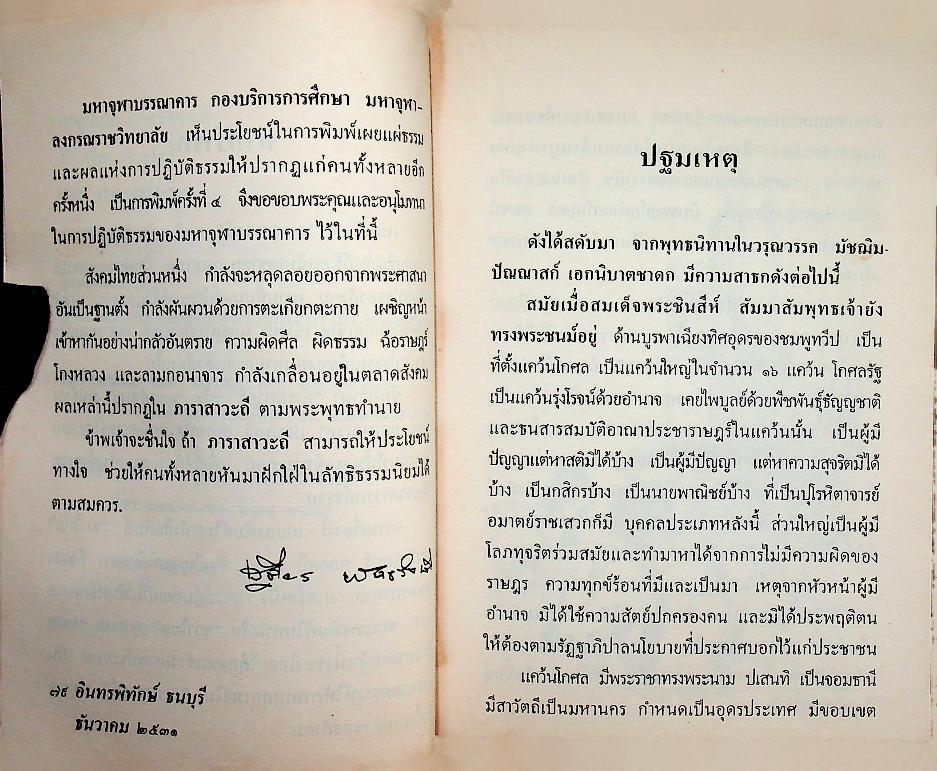 มหาจุฬาบรรณาคาร กองบริการการศึกษา มหาจุฬา-
ลงกรณราชวิทยาลัย เห็นประโยชน์ในการพิมพ์เผยแผ่ธรรม
และผลแห่งการปฏิบัติธรรมให้ปรากฏแก่คนทั้งหลายอีก
ครั้งหนึ่ง เป็นการพิมพ์ครั้งที่ ๔ จึงขอขอบพระคุณและอนุโมทนา
ในการปฏิบัติธรรมของมหาจุฬาบรรณาคาร ไว้ในที่นี้
สังคมไทยส่วนหนึ่ง กำลังจะหลุดลอยออกจากพระศาสนา
อันเป็นฐานตั้ง กำลังผันผวนด้วยการตะเกียกตะกาย เผชิญหน้า
เข้าหากันอย่างน่ากลัวอันตราย ความผิดศีล ผิดธรรม ฉ้อราษฎร์
โกงหลวง และลามกอนาจาร กำลังเกลื่อนอยู่ในตลาดสังคม
ผลเหล่านี้ปรากฏใน ภาราสาวะถี ตามพระพุทธทำนาย
ข้าพเจ้าจะชื่นใจ ถ้า ภาราสาวะถี สามารถให้ประโยชน์
ทางใจ ช่วยให้คนทั้งหลายหันมาฝักใฝ่ในลัทธิธรรมนิยมได้
ตามสมควร.
๗๙ อินทรพิทักษ์ ธนบุรี
ธันวาคม ๒๕๓๑
ปฐมเหตุ
ดังได้สดับมา จากพุทธนิทานในวรุณวรรค มัชฌิม-
ปัณณาสก์ เอกนิบาตชาดก มีความสาธกดังต่อไปนี้
สมัยเมื่อสมเด็จพระชินสีห์ สัมมาสัมพุทธเจ้ายัง
ทรงพระชนม์อยู่ ด้านบูรพาเฉียงทิศอุดรของชมพูทวีป เป็น
ที่ตั้งแคว้นโกศล เป็นแคว้นใหญ่ในจำนวน ๑๖ แคว้น โกศลรัฐ
เป็นแคว้นรุ่งโรจน์ด้วยอำนาจ เคยไพบูลย์ด้วยพืชพันธุ์ธัญญชาติ
และธนสารสมบัติอาณาประชาราษฎร์ในแคว้นนั้น เป็นผู้มี
ปัญญาแต่หาสติมิได้บ้าง เป็นผู้มีปัญญา แต่หาความสุจริตมิได้
บ้าง เป็นกสิกรบ้าง เป็นนายพาณิชย์บ้าง ที่เป็นปุโรหิตาจารย์
อมาตย์ราชเสวกก็มี บุคคลประเภทหลังนี้ ส่วนใหญ่เป็นผู้มี
โลภทุจริตร่วมสมัยและทำมาหาได้จากการไม่มีความผิดของ
ราษฎร ความทุกข์ร้อนที่มีและเป็นมา เหตุจากหัวหน้าผู้มี
อำนาจ มิได้ใช้ความสัตย์ปกครองคน และมิได้ประพฤติตน
ให้ต้องตามรัฏฐาภิปาลนโยบายที่ประกาศบอกไว้แก่ประชาชน
แคว้นโกศล มีพระราชาทรงพระนาม ปเสนทิ เป็นจอมธานี
มีสาวัตถีเป็นมหานคร กำหนดเป็นอุดรประเทศ มีขอบเขต